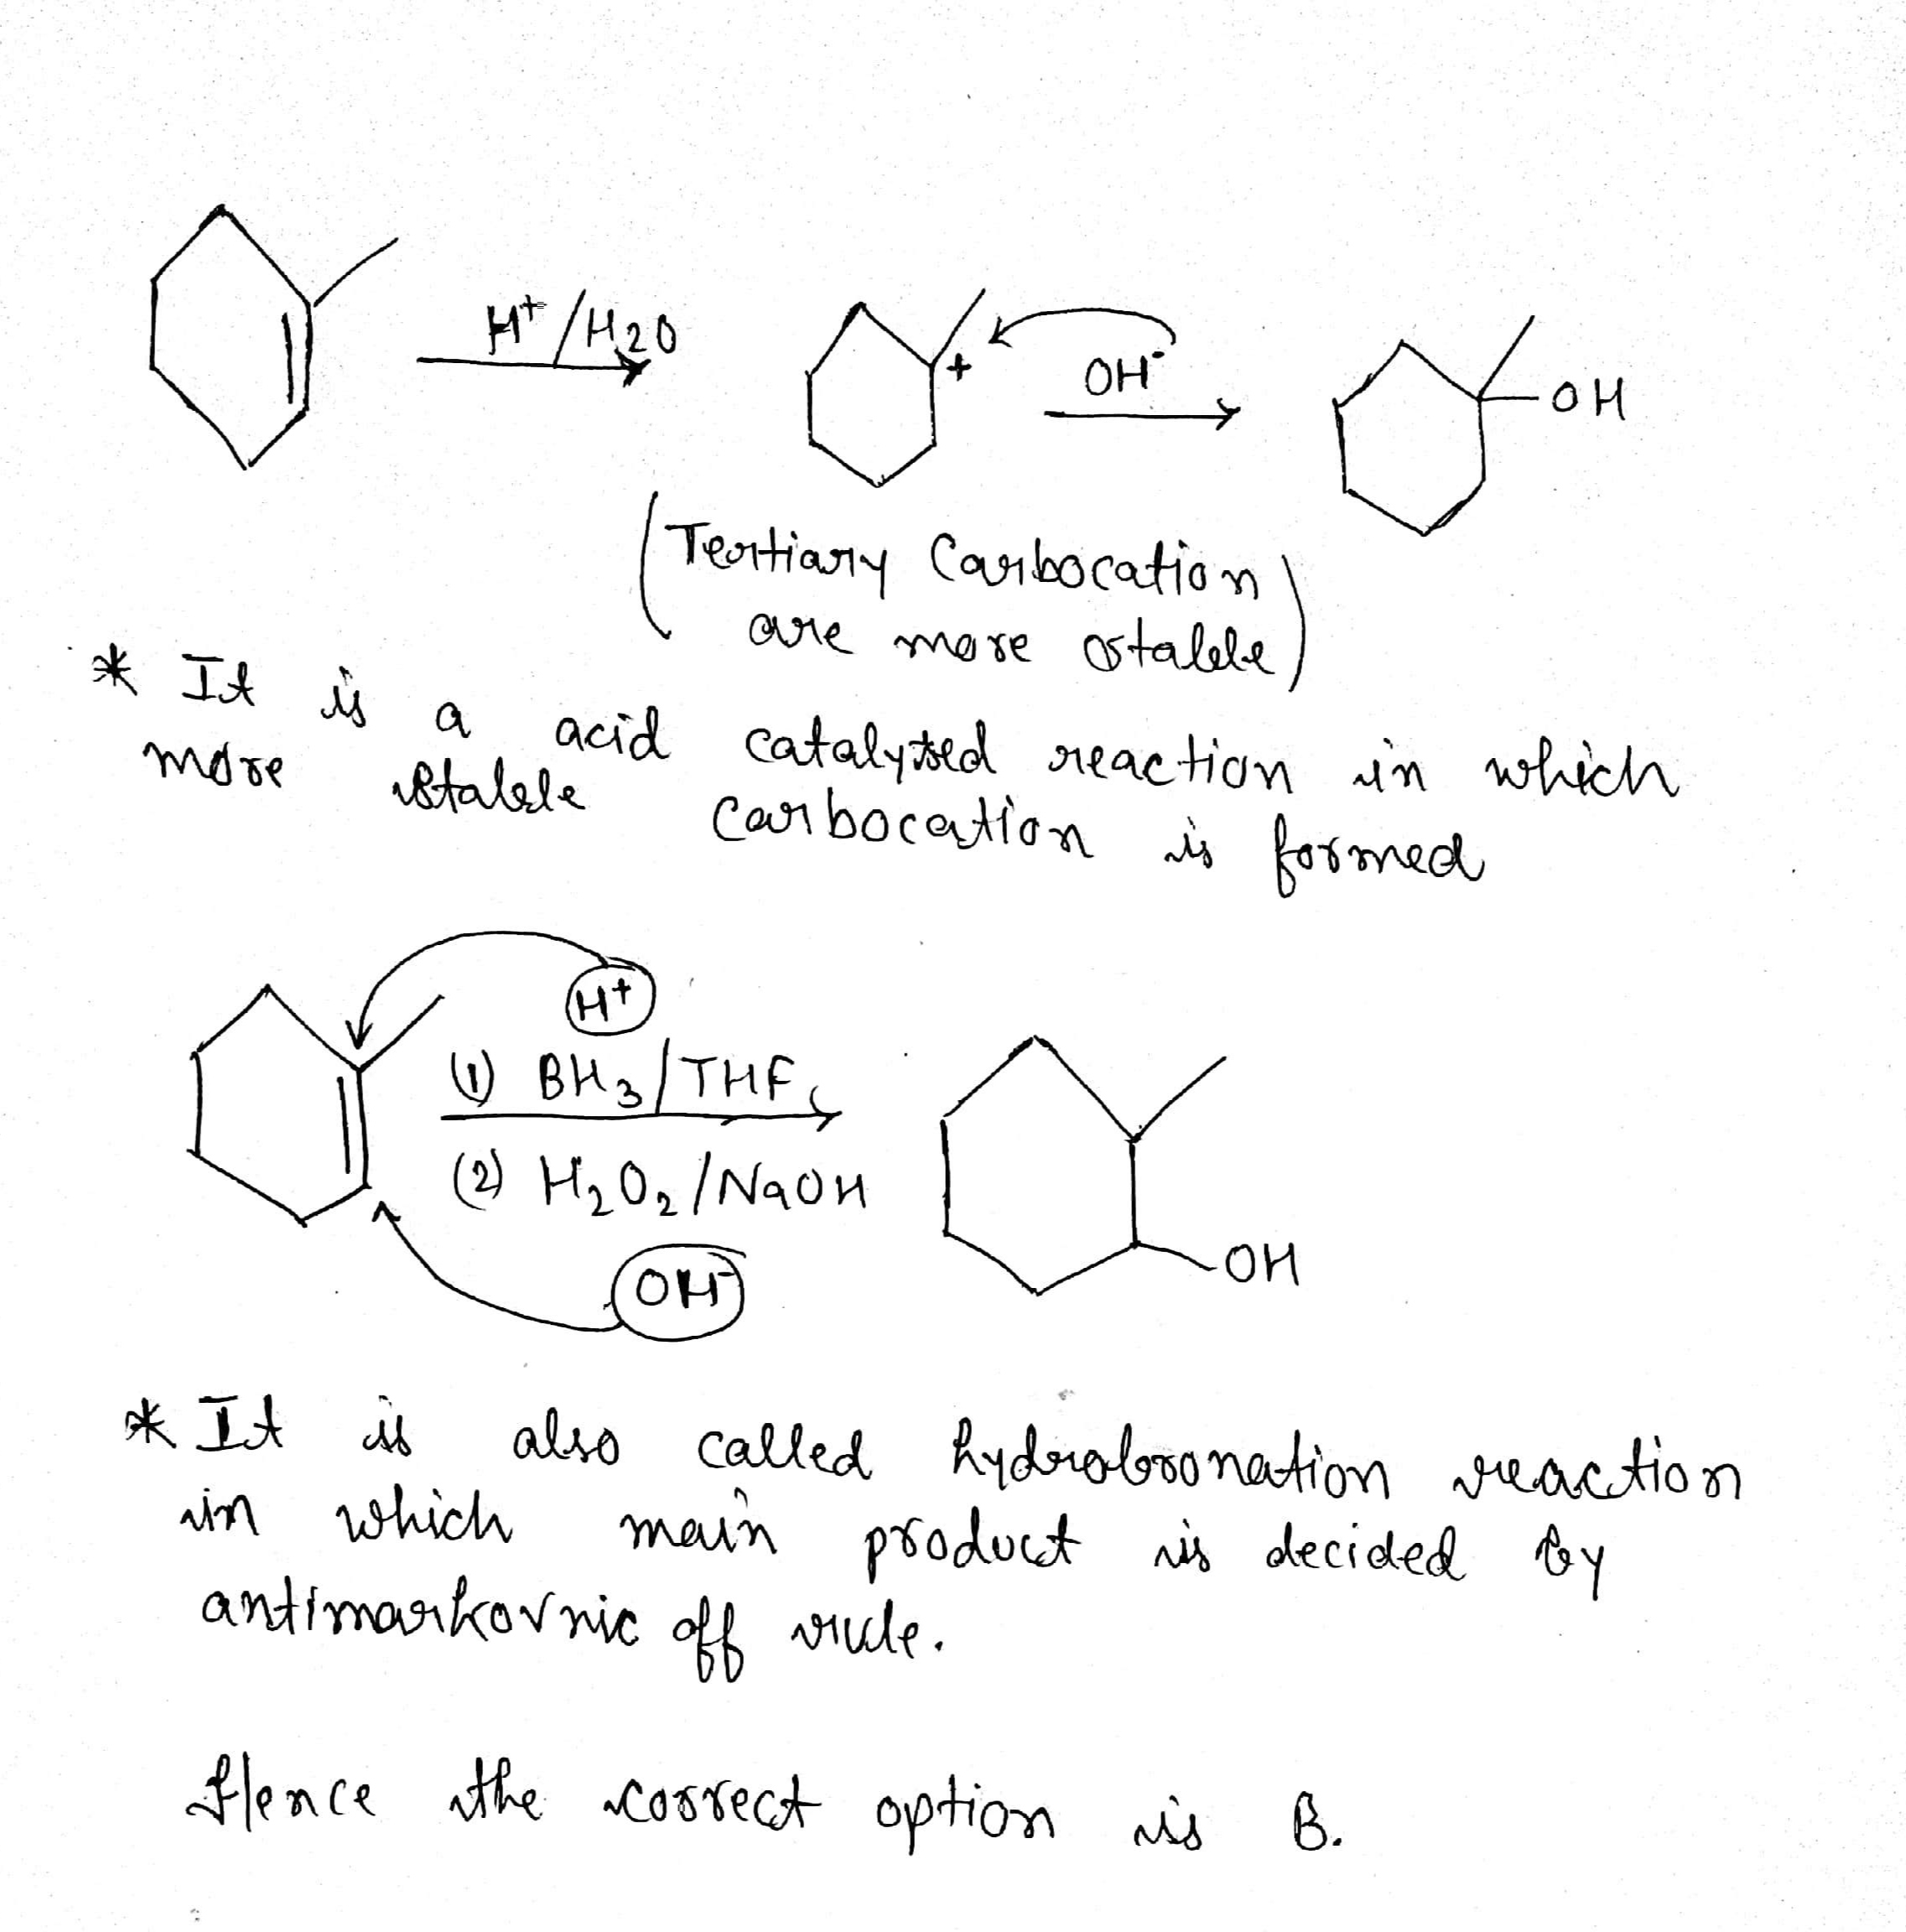 H+/H2O
+
OH-
OH
(Tertiary Carbocation
are more stable)
* It is a acid catalysed reaction in which
more stable Carbocation is formed
H+
(1) BH3/THF
(2) H2O2/NaOH
OH-
OH
* It is also called hydrobronation reaction
in which main product is decided by
antimarkovnic off rule.
Hence the correct option is B.